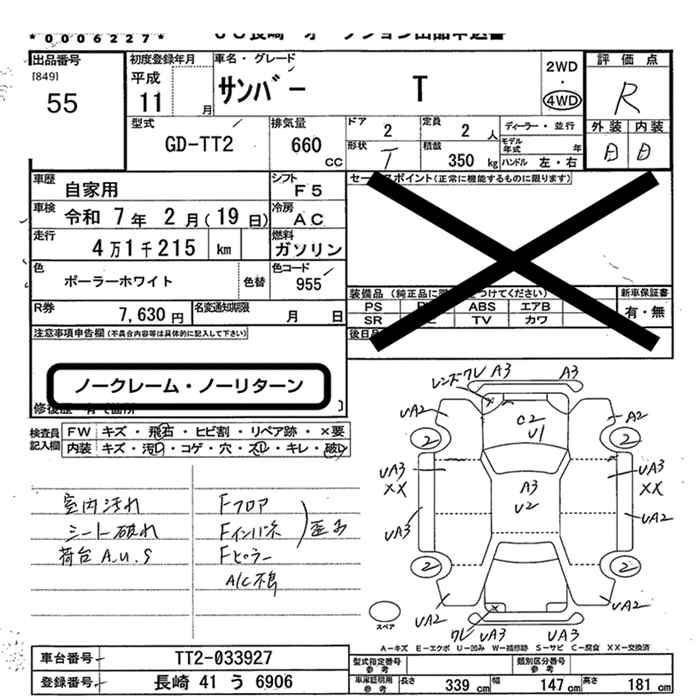 *0006227* JU長崎 オークション出品申込書
出品番号
[849]
55
初度登録年月
平成
11 月
車名・グレード
サンバー T
2WD
・
4WD
評価点
R
外装 内装
D D
型式
GD-TT2
排気量
660
CC
ドア
2
定員
2 人
形状
T
積載
350 kg
ディーラー・並行
モデル年式 年
ハンドル 左・右
車歴
自家用
シフト
F5
車検
令和 7年 2月(19日)
冷房
AC
走行
4万1千215 km
燃料
ガソリン
色
ポーラーホワイト
色替
色コード
955
R券
7,630円
名変通知期限
月 日
セールスポイント(正常に機能するものに限ります)
装備品 (純正品に限り をつけてください)
PS ABS エアB
SR TV カワ
新車保証書
有・無
後日品
注意事項申告欄 (不具合内容等は具体的に記入して下さい)
ノークレーム・ノーリターン
修復歴 有で箇所 )
検査員
記入欄
FW キズ・飛石・ヒビ割・リペア跡・×要
内装 キズ・汚D・コゲ・穴・スD・キレ・破D
室内汚れ
シート破れ
荷台A.U.S
Fフロア
Fインパネ
Fピラー
A/C不良
歪み
レンズワレ A3 A3
UA2 C2 U1 A2
2 2
UA3 XX A3 U2 UA3 XX
UA3 UA2
2 2
UA2 UA2
ワレ UA3 UA3
スペア
A―キズ E―エクボ U―凹み W―補修跡 S―サビ C―腐食 XX―交換済
車台番号 TT2-033927
登録番号 長崎 41 う 6906
型式指定番号
参考
類別区分番号
参考
車庫証明用
参考
長さ 339 cm 幅 147 cm 高さ 181 cm